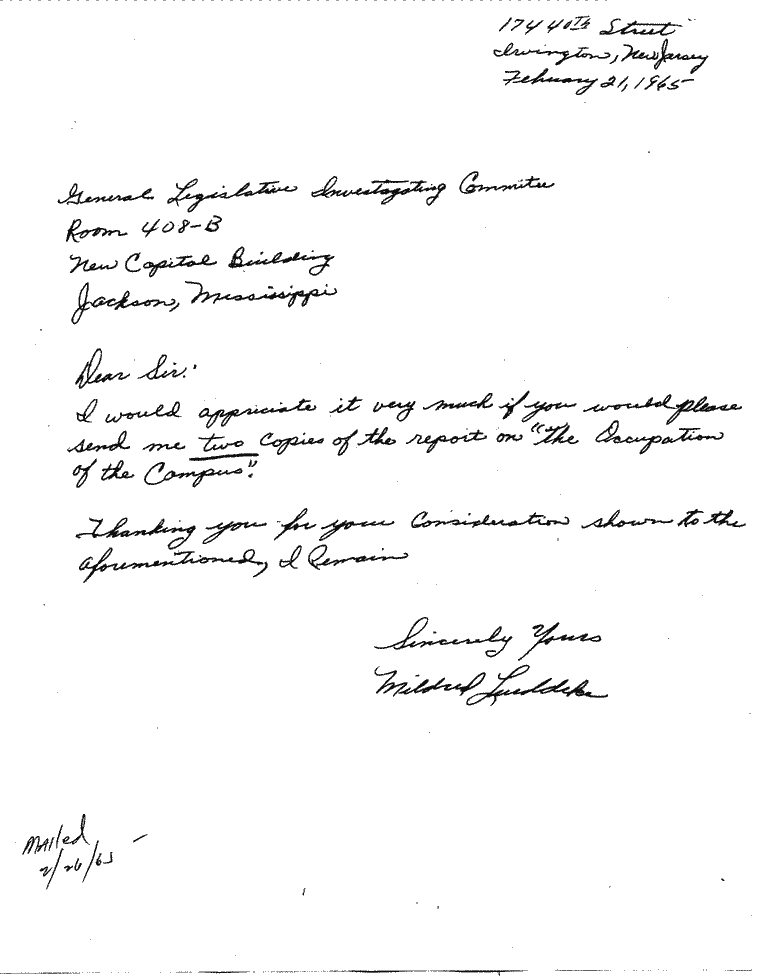 174 40th Street
Irvington, New Jersey
February 21, 1965
General Legislative Investagating Commitee
Room 408-B
New Capital Building
Jackson, Mississippi
Dear Sir:
I would appriciate it very much if you would please
send me two copies of the report on "the Occupation
of the Campus".
Thanking you for your consideration shown to the
aforementioned, I Remain
Sincerely Yours
Mildred Lueddeke
Mailed
2/26/65